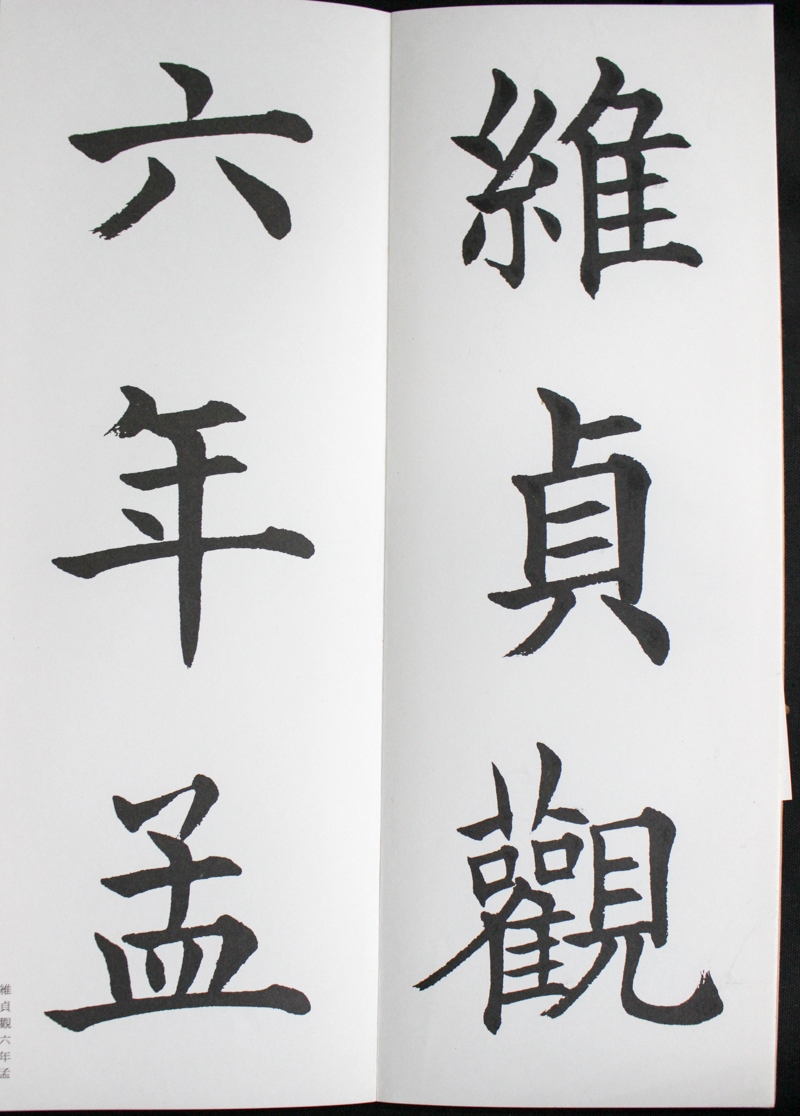 維貞觀
六年孟
維貞觀六年孟